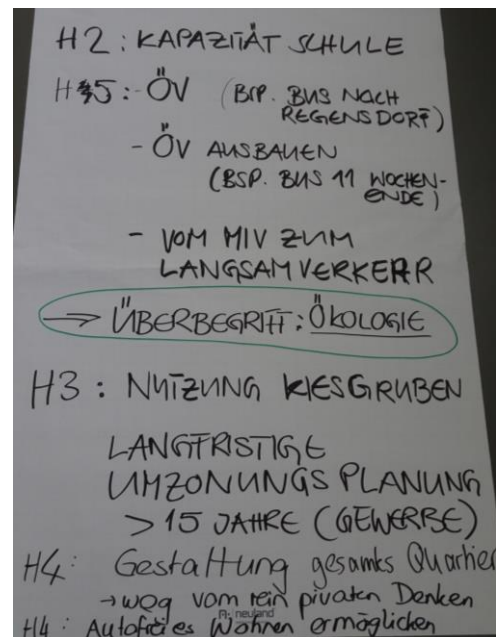 H2: KAPAZITÄT SCHULE
H5: - ÖV (BSP. BUS NACH
REGENSDORF)
- ÖV AUSBAUEN
(BSP. BUS 11 WOCHEN-
ENDE)
- VOM MIV ZUM
LANGSAMVERKEHR
→ ÜBERBEGRIFF: ÖKOLOGIE
H3: NUTZUNG KIESGRUBEN
LANGFRISTIGE
UMZONUNGSPLANUNG
> 15 JAHRE (GEWERBE)
H4: Gestaltung gesamts Quartier
→ weg vom rein pivaten Denken
neuland
H4: Autofreies Wohnen ermöglichen